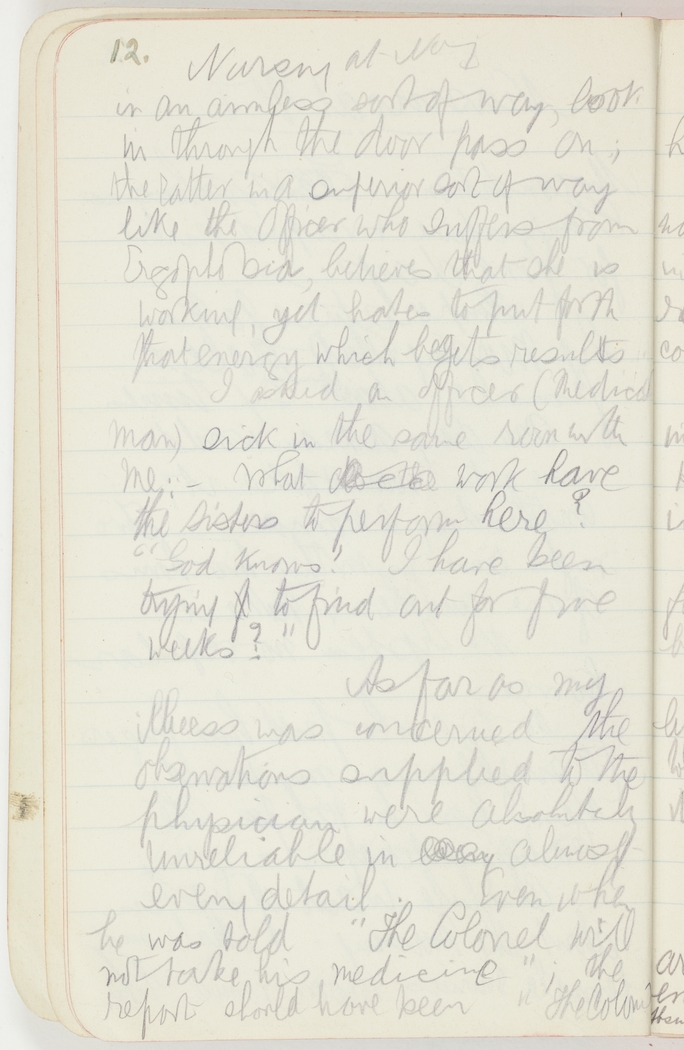 12.
Nursing at
in an aimless sort of way, look
in through the door pass on;
the latter in a superior sort of way
like the Officer who suffers from
Ergophobia, believes that she is
working, yet hates to put forth
that energy which begets results
I asked an officer (medical
man) sick in the same room with
me:- What work have
the sisters to perform here?
"God knows! I have been
trying to find out for five
weeks?"
As far as my
illness was concerned the
observations supplied to the
physician were absolutely
unreliable in almost
every detail. Even when
he was told "The Colonel will
not take his medicine"; the
report should have been "The Colonel